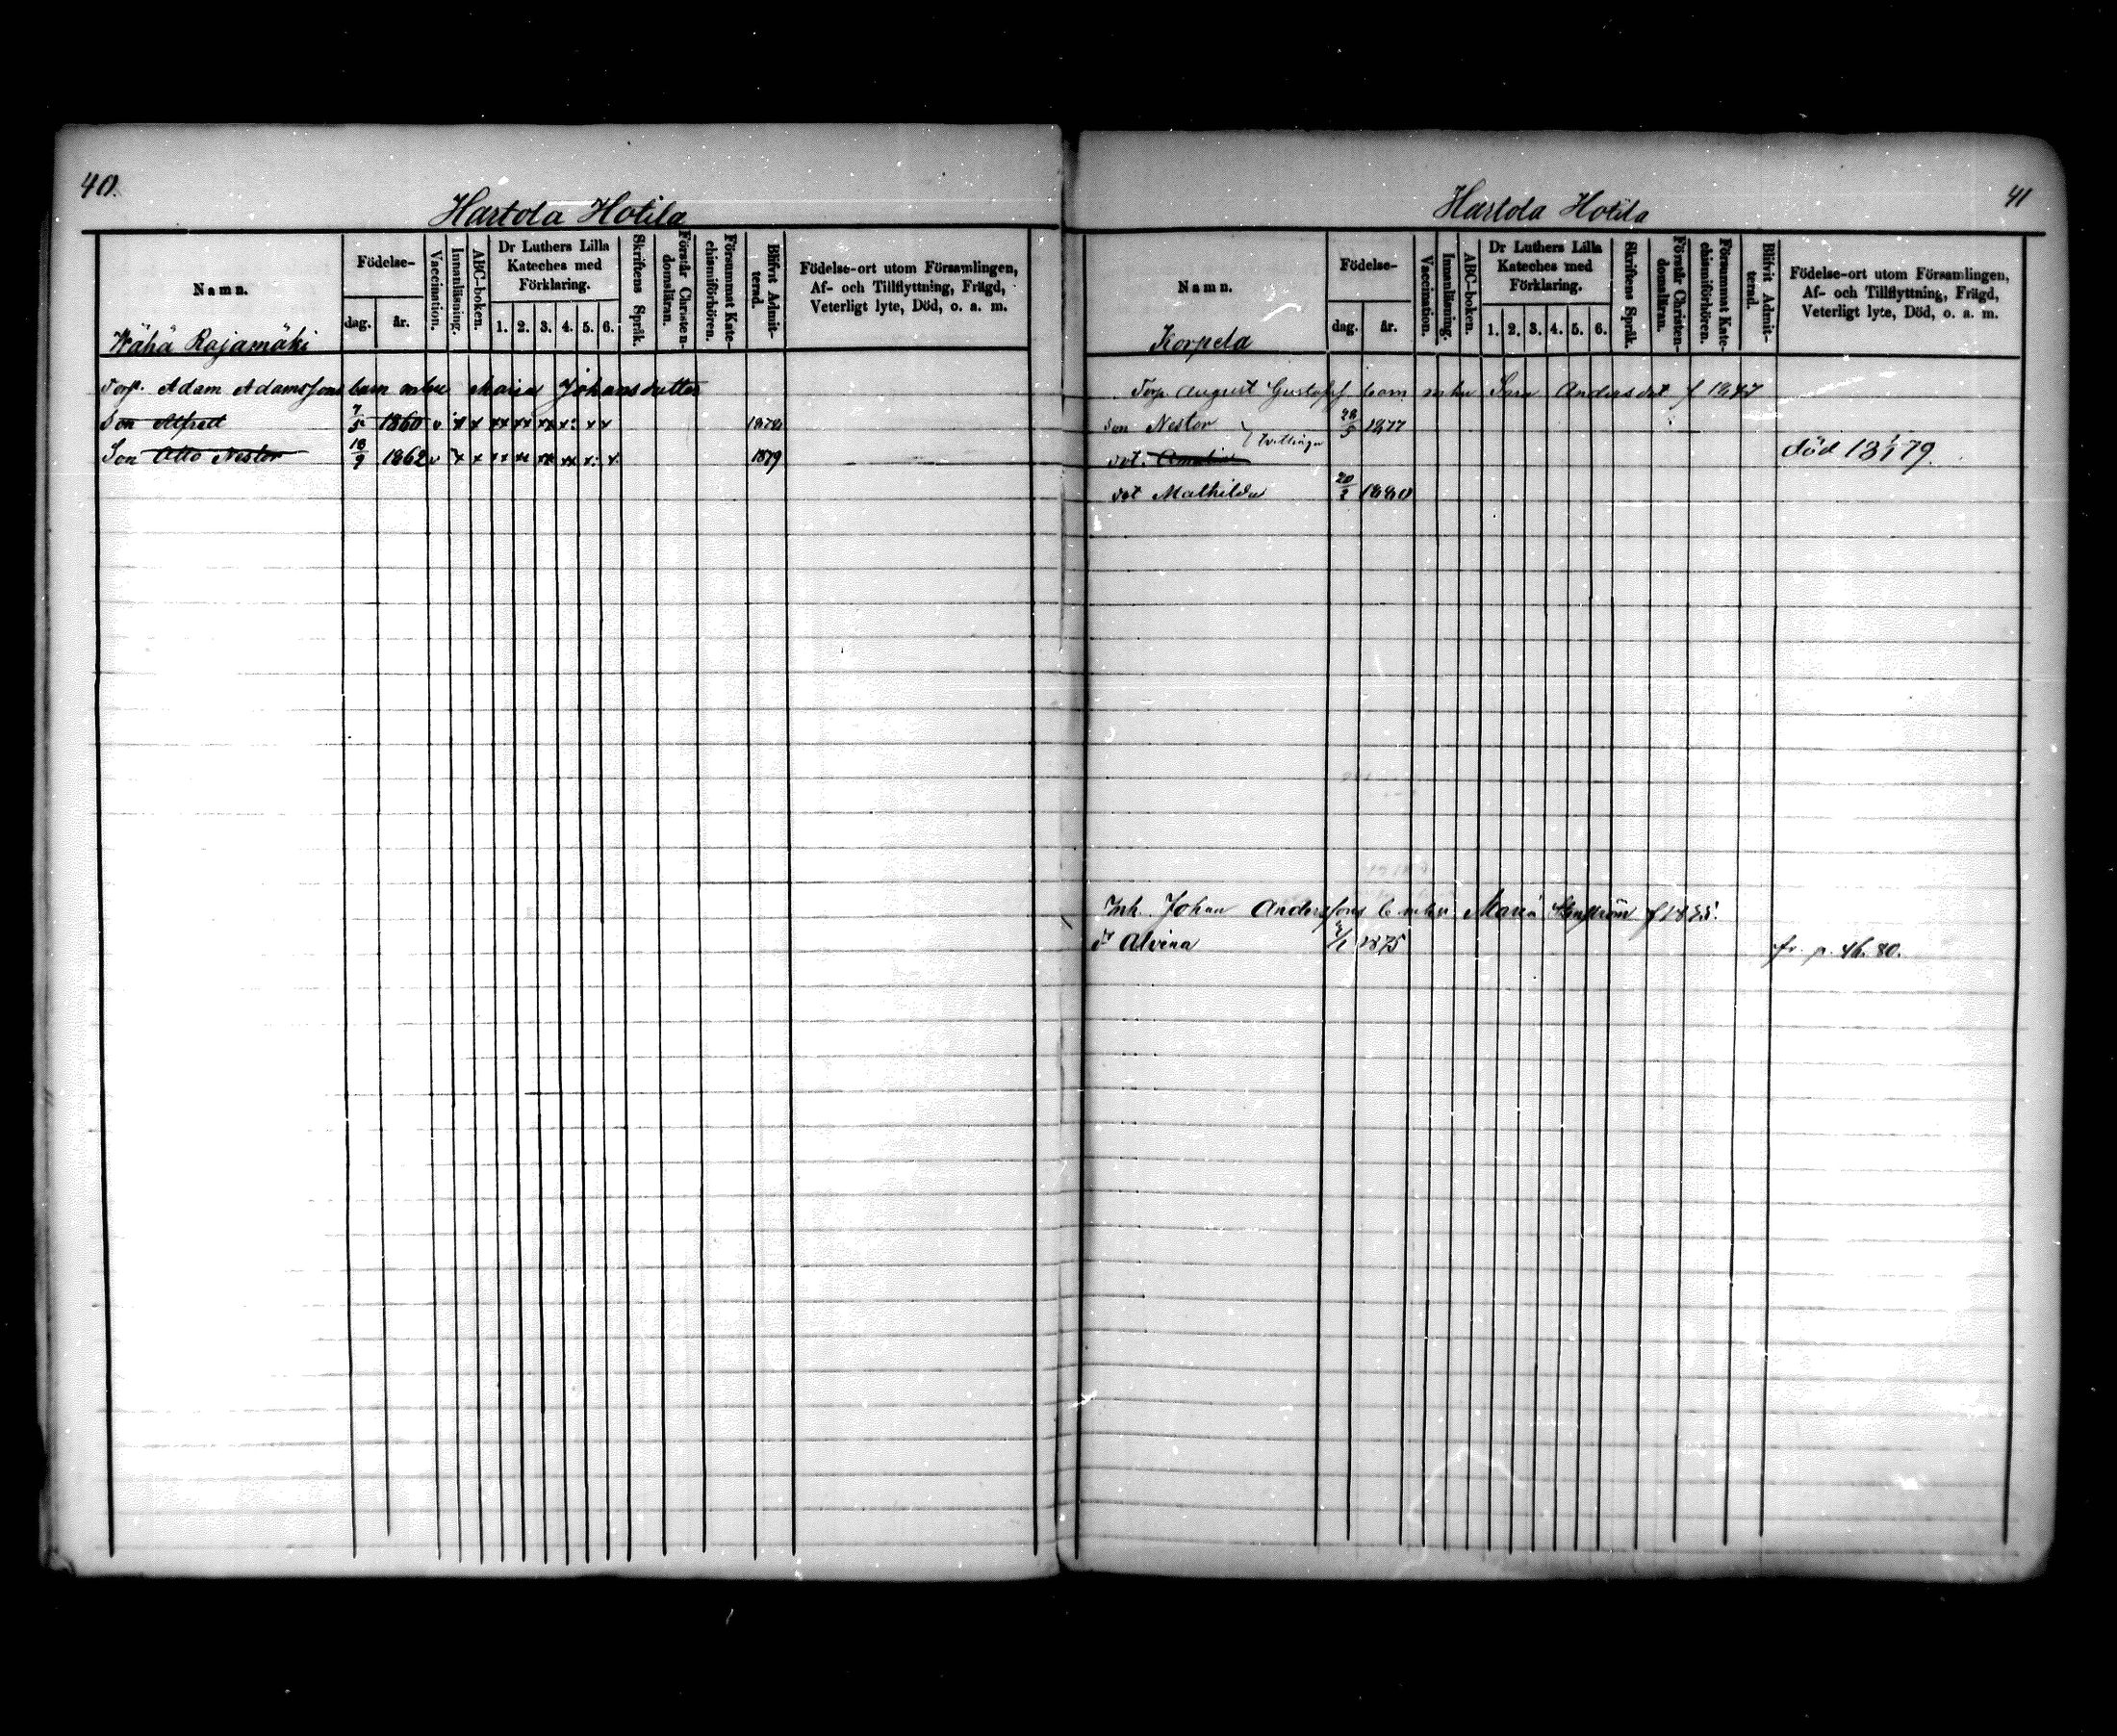 40.
Hartola Hotila
Namn.
Födelse-
dag.
år.
Vaccination.
Innanläsning.
ABC-boken.
Dr Luthers Lilla
Kateches med
Förklaring.
1. 2. 3. 4. 5. 6.
Skriftens Språk.
Förstår Christen-
domsläran.
Försummat Kate-
chismiförhören.
Blifvit Admit-
terad.
Födelse-ort utom Församlingen,
Af- och Tillflyttning, Frägd,
Veterligt lyte, Död, o. a. m.
Wähä Rajamäki
Torp. Adam Adamssons barn m hu Maria Johansdotter
Son Alfred 7/5 1860 v x x xx xx xx x: x x 1878
Son Otto Nestor 18/9 1862 v x x xx xx xx xx x: x. 1879
41
Hartola Hotila
Namn.
Födelse-
dag.
år.
Vaccination.
Innanläsning.
ABC-boken.
Dr Luthers Lilla
Kateches med
Förklaring.
1. 2. 3. 4. 5. 6.
Skriftens Språk.
Förstår Christen-
domsläran.
Försummat Kate-
chismiförhören.
Blifvit Admit-
terad.
Födelse-ort utom Församlingen,
Af- och Tillflyttning, Frägd,
Veterligt lyte, Död, o. a. m.
Korpela
Torp August Gustafss barn m hu Andersdot f 1847
Son Nestor } Tvillingar 28/5 1877
dot. Amalia död 18 1/1 79.
dot Mathilda 20/2 1880
Inh. Johan Anderssons b m hu Maria f 1835.
dr Alvina 1875 fr. p. 46. 80.